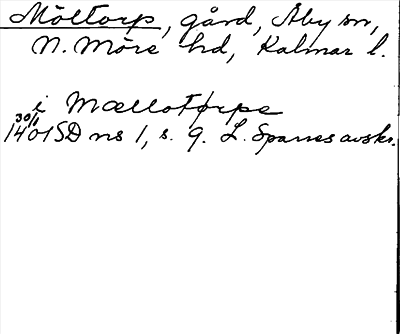 Möltorp, gård, Åby sn,
N. Möre hd, Kalmar l.
i Mællotorpe
30/1 1401 SD ns 1, s. 9. L. Sparres avskr.